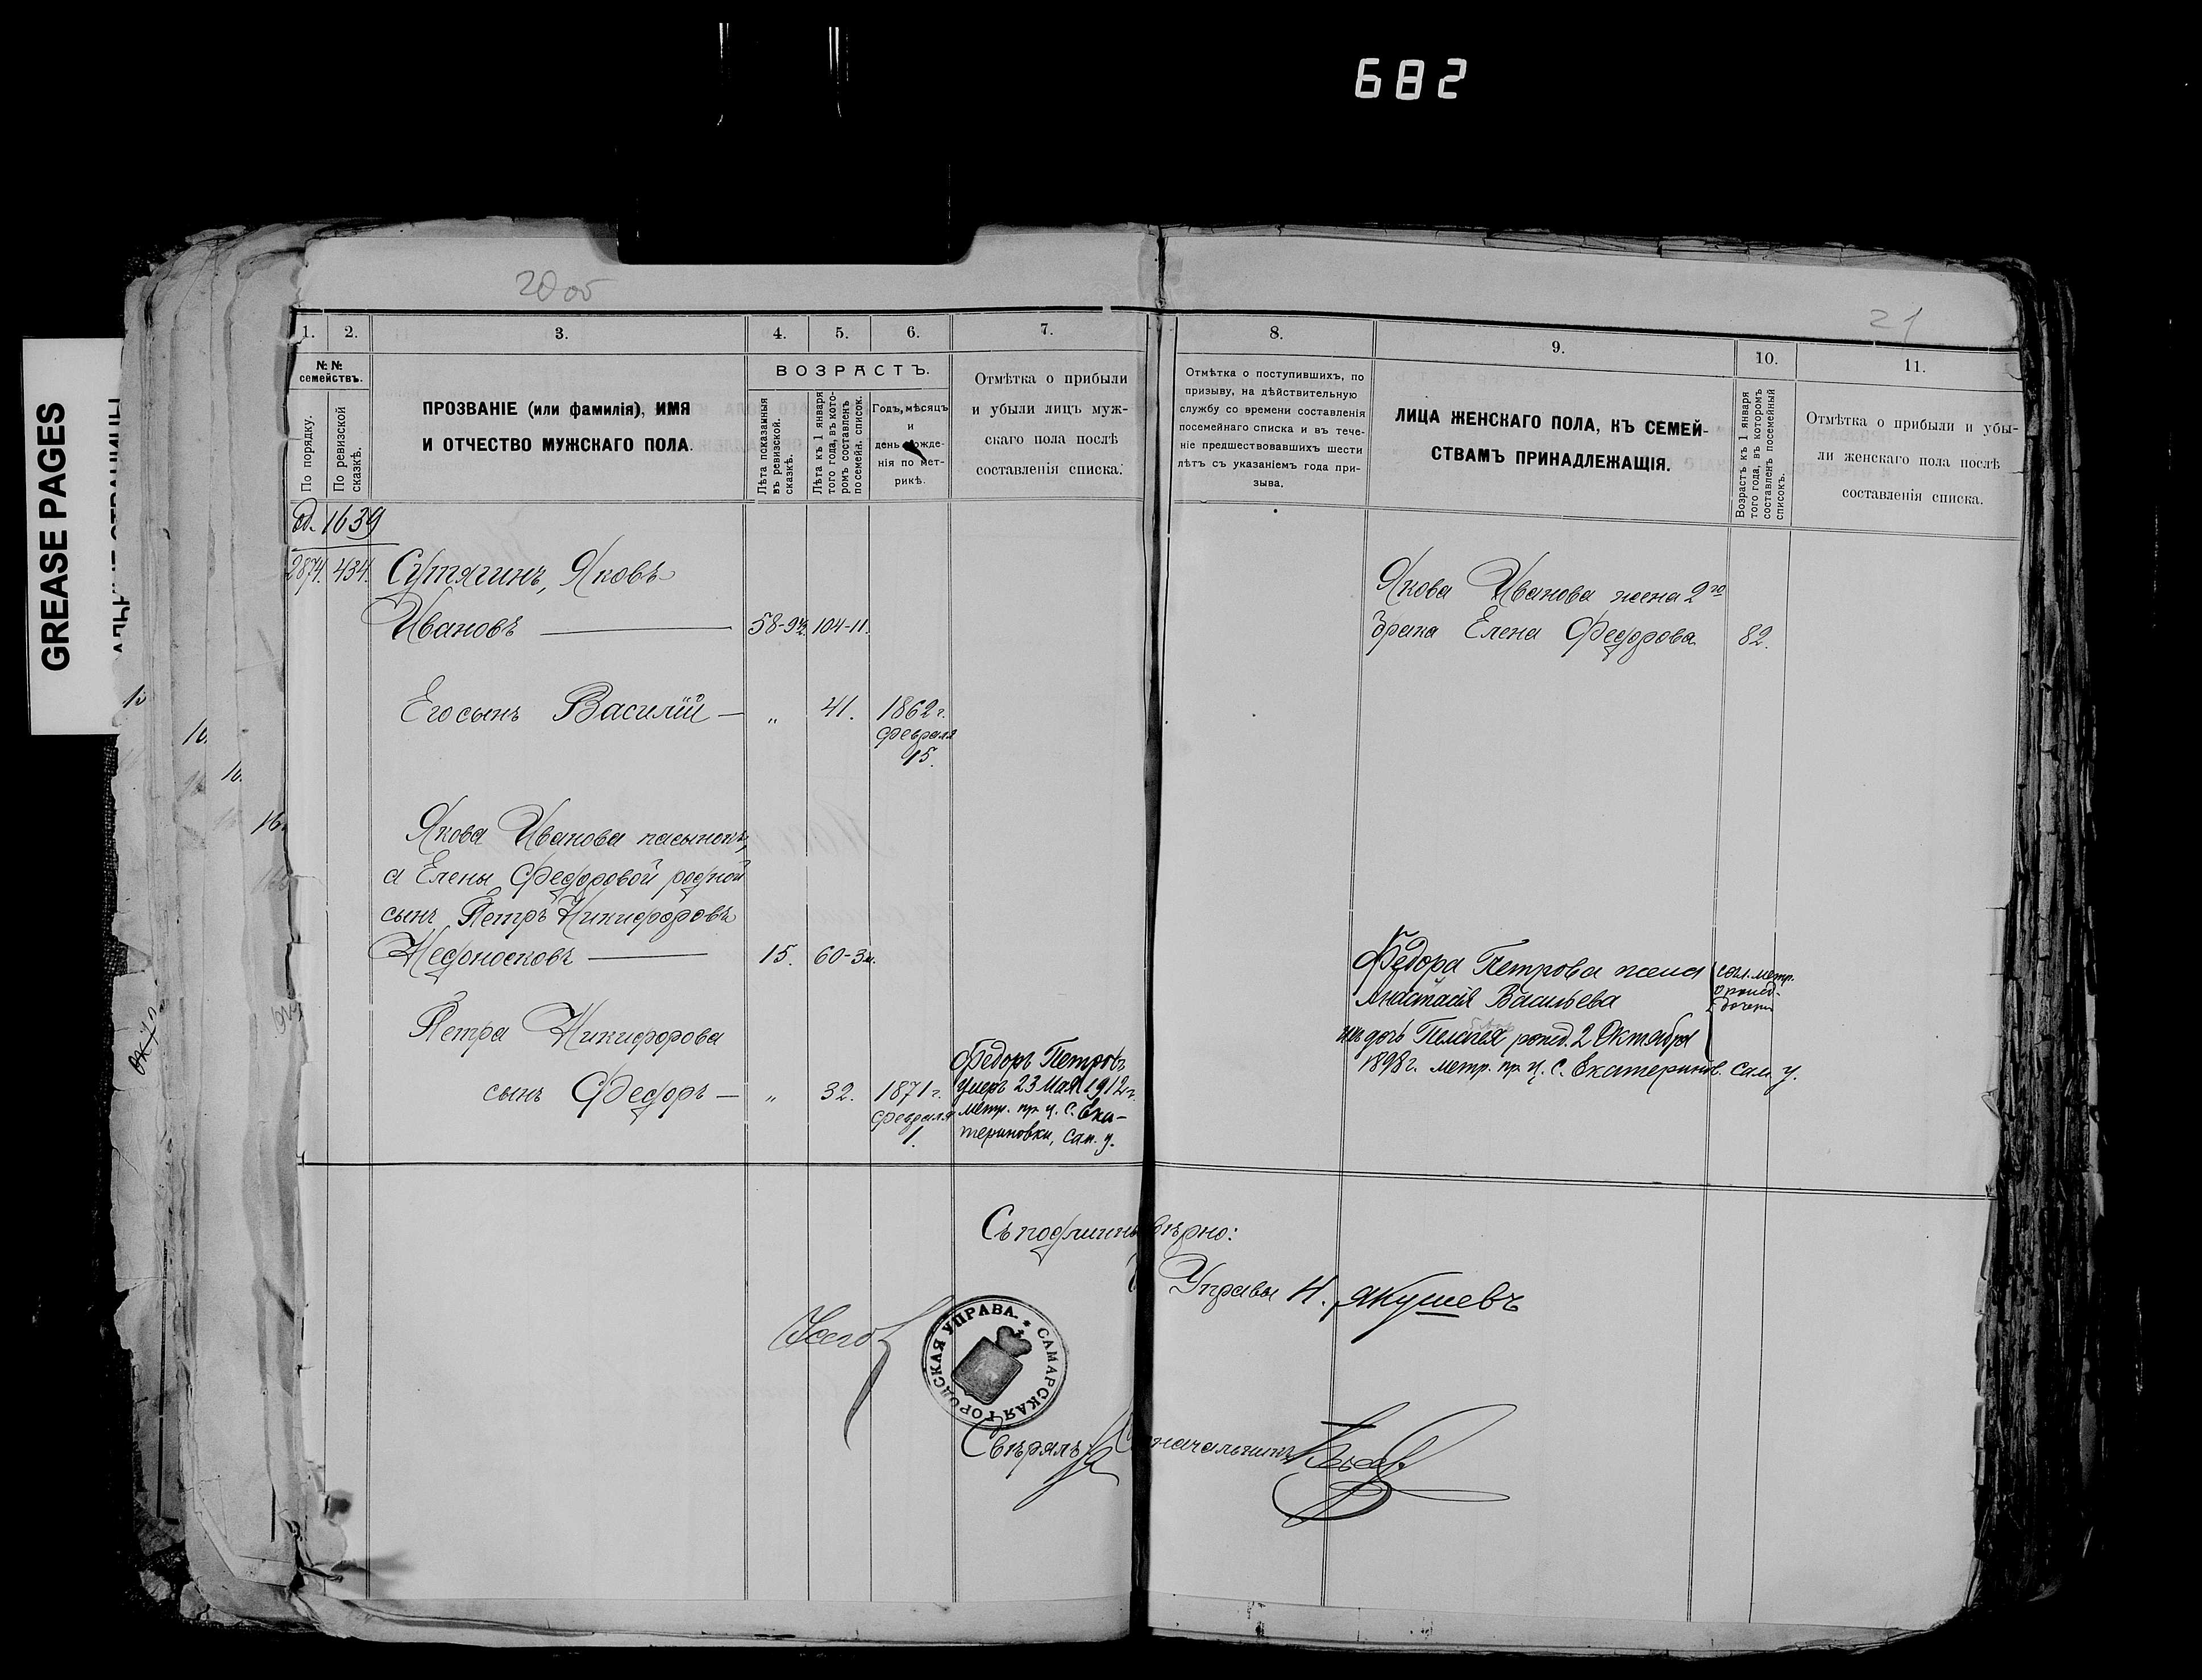 682
GREASE PAGES
20 об
21
1.
2.
3.
4.
5.
6.
7.
8.
9.
10.
11.
№№
семействъ.
По порядку.
По ревизской
сказкѣ.
ПРОЗВАНІЕ (или фамилія), ИМЯ
И ОТЧЕСТВО МУЖСКАГО ПОЛА.
ВОЗРАСТЪ.
Лѣта показанныя
въ ревизской.
сказкѣ.
Лѣта къ 1 января
того года, въ кото-
ромъ составленъ
посемейн. список.
Годъ, мѣсяцъ
и
день рожде-
нія по мет-
рикѣ.
Отмѣтка о прибыли
и убыли лицъ муж-
скаго пола послѣ
составленія списка.
Отмѣтка о поступившихъ, по
призыву, на дѣйствительную
службу со времени составленія
посемейнаго списка и въ тече-
ніе предшествовавшихъ шести
лѣтъ съ указаніемъ года при-
зыва.
ЛИЦА ЖЕНСКАГО ПОЛА, КЪ СЕМЕЙ-
СТВАМЪ ПРИНАДЛЕЖАЩІЯ.
Возрастъ къ 1 января
того года, въ которомъ
составленъ посемейный
списокъ.
Отмѣтка о прибыли и убы-
ли женскаго пола послѣ
составленія списка.
1639
2874. 434. Сутягинъ, Яковъ
Ивановъ — 104-11.
Его сынъ Василій — „ 41. 1862 г.
февраля
15.
Якова Иванова пасынокъ,
а Елены Федоровой родной
сынъ Петръ Никифоровъ
Недоносковъ — 15. 60-3м.
Петра Никифорова
сынъ Федоръ — „ 32. 1871 г.
февраля
1.
Федоръ Петровъ
умеръ 23 Мая 1912 г.
метр. пр. ц. с. Ека-
териновки, Сам. у.
Якова Иванова жена 2го
брака Елена Федорова. 82.
Федора Петрова жена
Анастасія Васильева
их дочь Пелагея рожд. 2 Октября
1898 г. метр. пр. ц. с. Екатеринов. Сам. у.
согл. метр.
о рожд.
дочери
Съ подлиннымъ вѣрно:
Управы Н. Якушевъ
САМАРСКАЯ ГОРОДСКАЯ УПРАВА.
Свѣрялъ
начальникъ